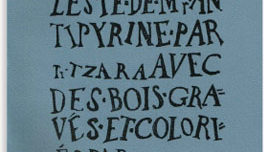 LESTE·DE·M·AN
TIPYRINE·PAR
T·TZARA AVEC
DES·BOIS·GRA=
VÉS·ET·COLORI=
ÉS PAR